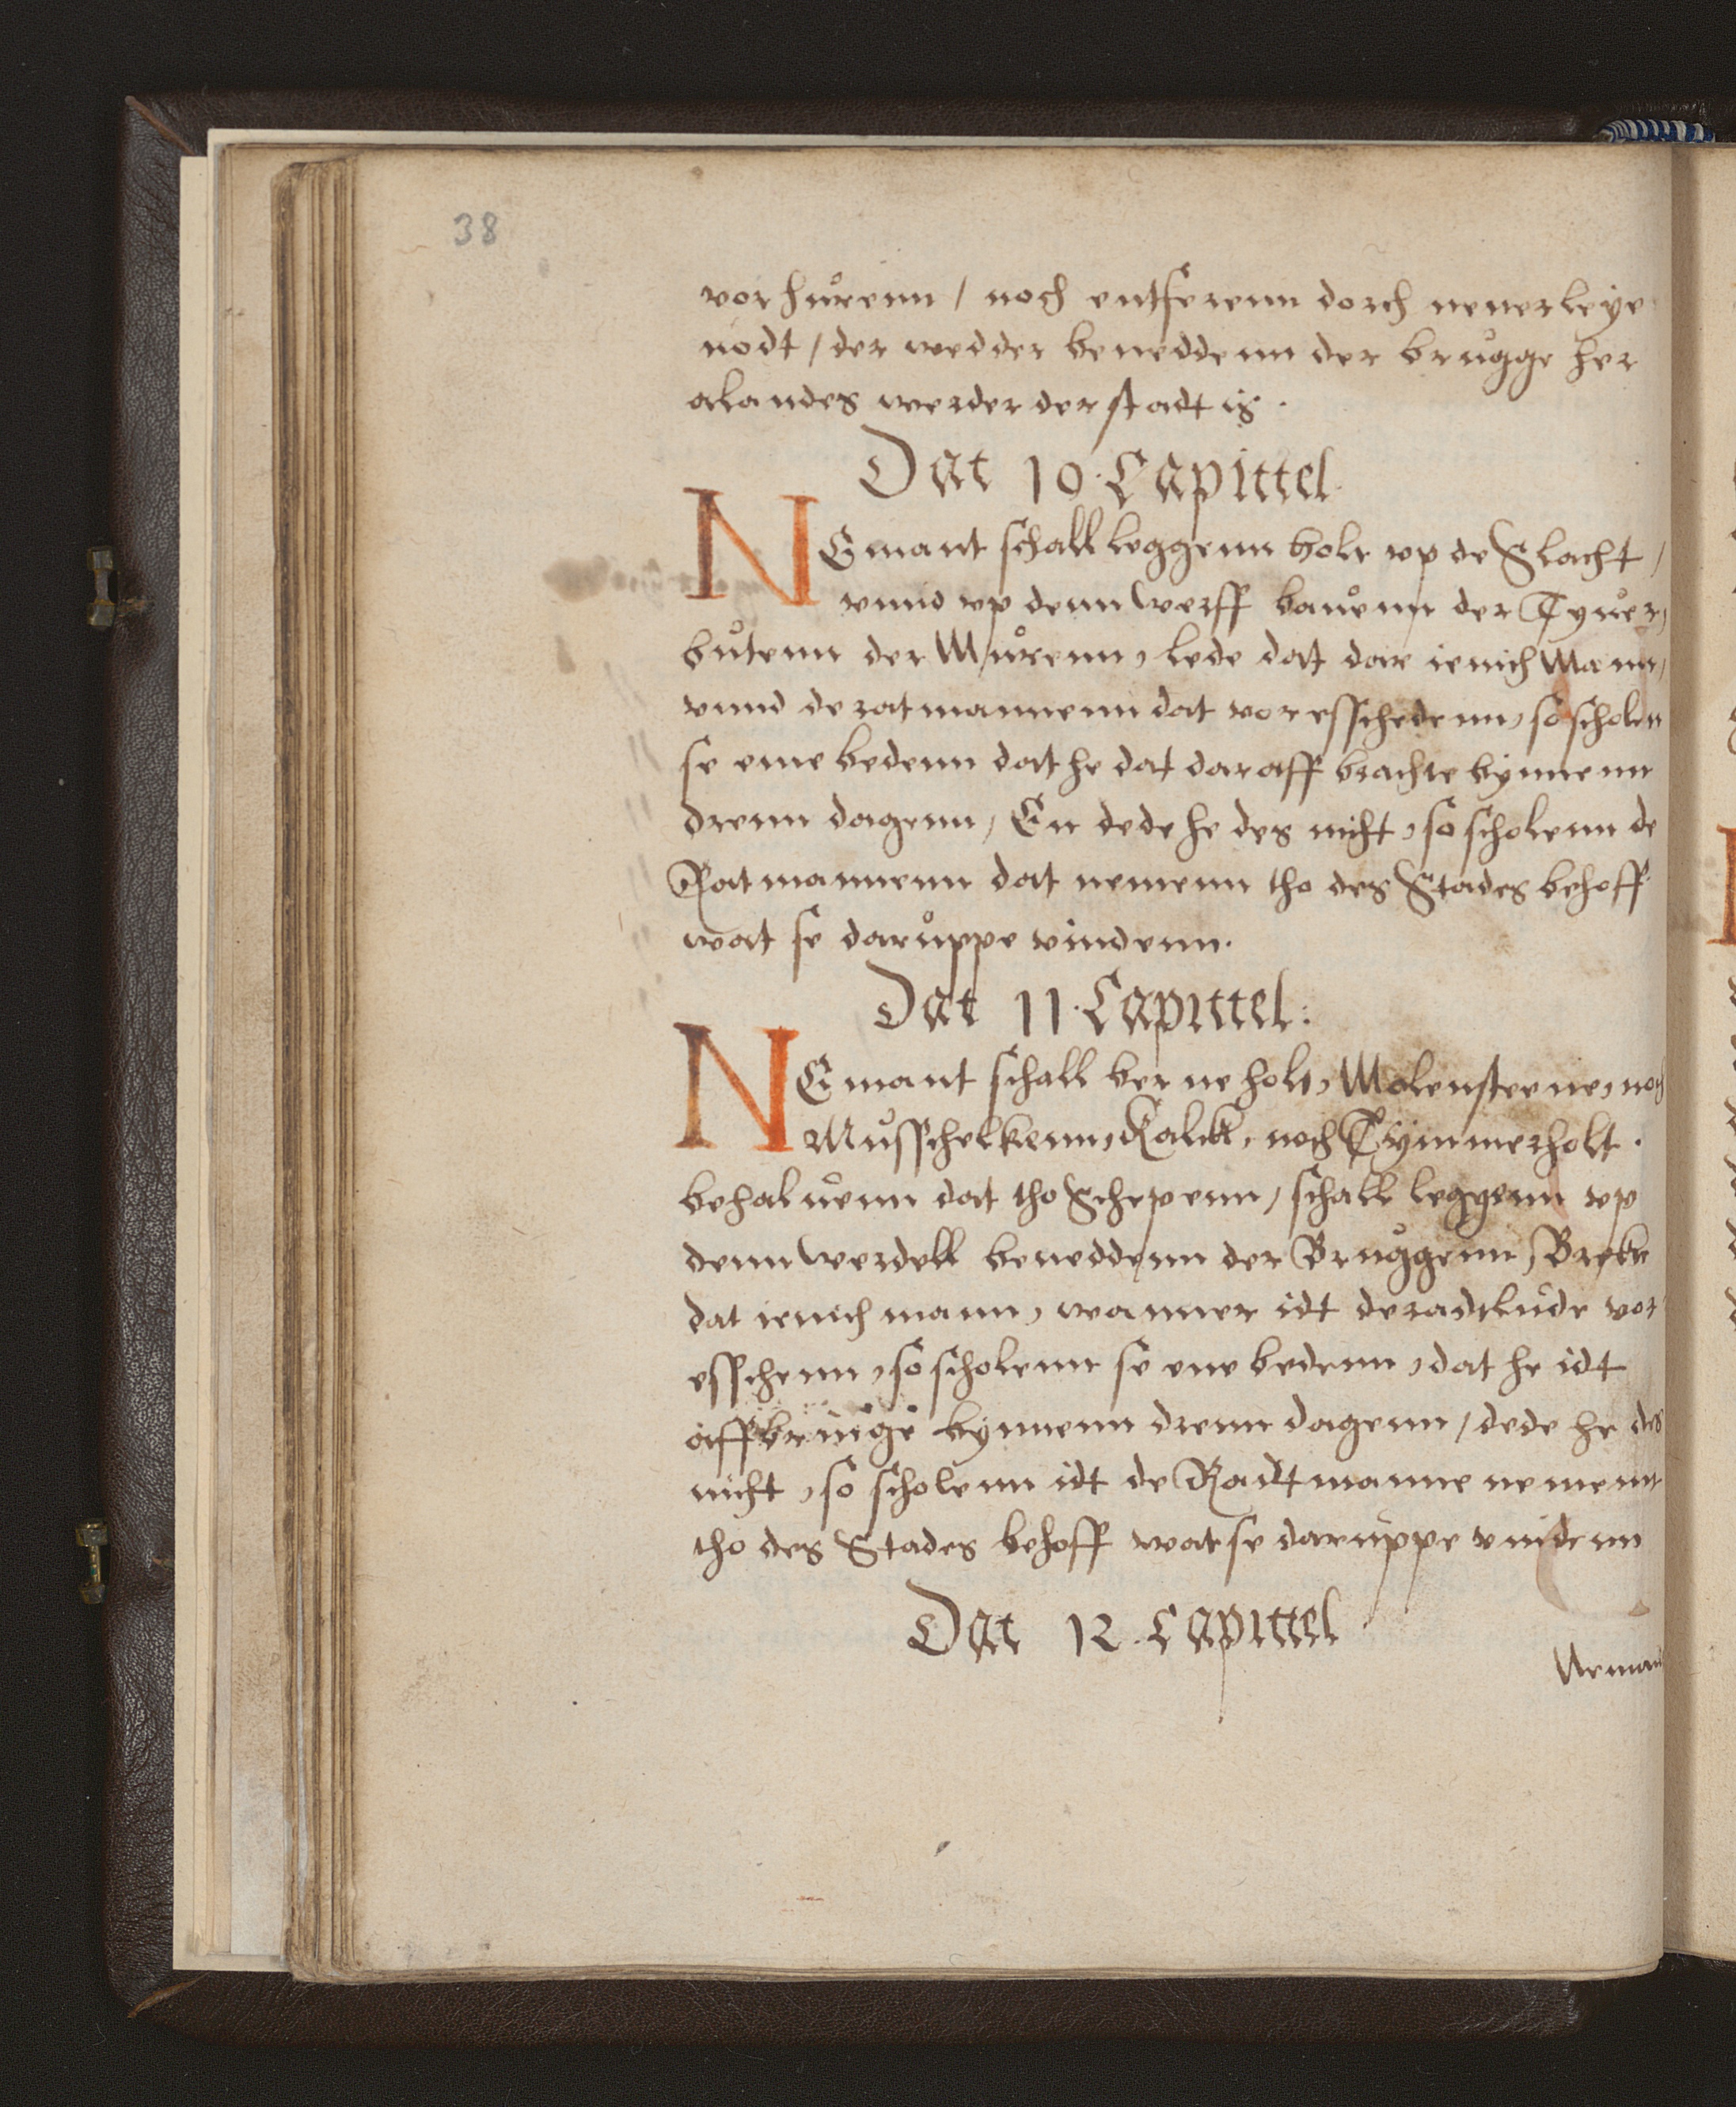 38
vorhůrenn / noch entferenn dorch nenerleye
nodt / der wedder beneddenn der brůgge her
alandes werder der stadt is.
Dat 10. Capittel
NEmant schall leggenn holt vp de Slacht /
vnnd vp denn Werff bauenn der Tyuer,
bůtenn der Můrenn, lede dat dar ienich Mann,
vnnd de ratmannenn dat voresschedenn, so scholen
se eme bedenn dat he dat daraff brachte bynnenn
drenn dagenn, En dede he des nicht, so scholenn de
Ratmannenn dat nemenn tho des Stades behoff
wat se darůppe vindenn.
Dat 11. Capittel:
NEmant schall berneholt, Molensteene, noch
Můsschelkenn, Kalck, noch Tymmerholt.
behaluenn dat tho Schepenn, schall leggenn vp
denn Werdell beneddenn der Brůggenn, Breke
dat ienich mann, wanner idt de radtlude vor
esschenn, so scholenn se ene bedenn, dat he idt
affbringe bynnenn drenn dagenn, dede he des
nicht, so scholenn idt de Radtmanne nemenn
tho des Stades behoff wat se darůppe vindenn
Dat 12. Capittel
Nemant